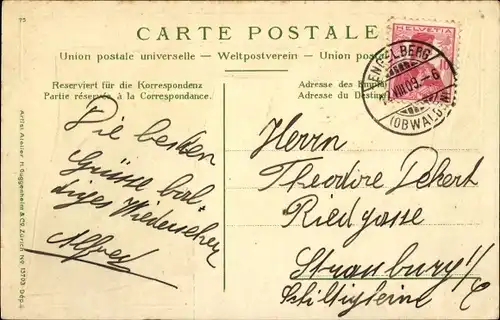 73
CARTE POSTALE
Union postale universelle – Weltpostverein – Union post
Reserviert für die Korrespondenz
Partie réservée à la Correspondance.
Adresse des Empfä
Adresse du Destin
HELVETIA
ENGELBERG
VIII.09.–6
(OBWALDEN)
Die besten
Grüsse bal-
diges Wiedersehen
Alfred
Herrn
Theodore
Riedgasse
Strassburg i/E
Schiltigheim
Artist. Atelier H. Guggenheim & Co., Zürich No. 13793 Dép.